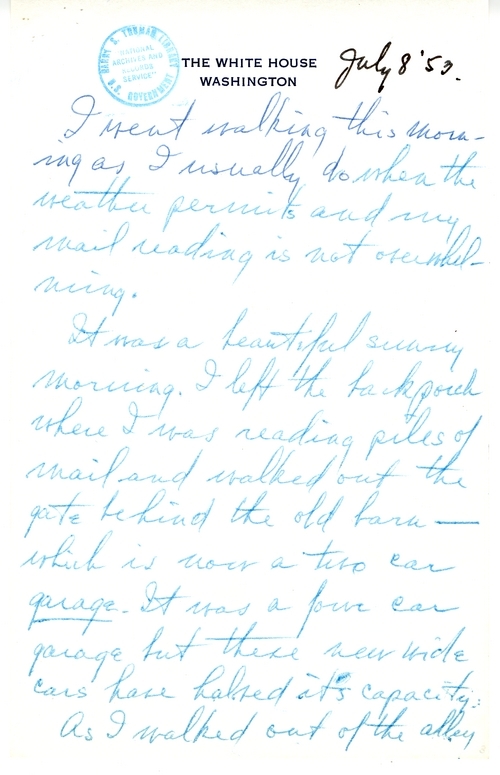 HARRY S. TRUMAN LIBRARY
"NATIONAL
ARCHIVES AND
RECORDS
SERVICE"
U.S. GOVERNMENT
THE WHITE HOUSE
WASHINGTON
July 8 '53.
I went walking this morn-
ing as I usually do when the
weather permits and my
mail reading is not overwhel-
ming.
It was a beautiful sunny
morning. I left the back porch
where I was reading piles of
mail and walked out the
gate behind the old barn —
which is now a two car
garage. It was a four car
garage but these new wide
cars have halved it's capacity.
As I walked out of the alley